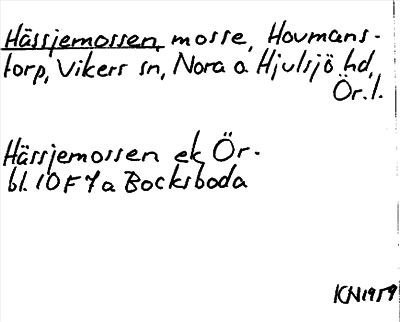 Hässjemossen, mosse, Hovmans-
torp, Vikers sn, Nora o Hjulsjö hd,
Ör.l.
Hässjemossen ek Ör-
bl. 10F7a Bocksboda
KN1959